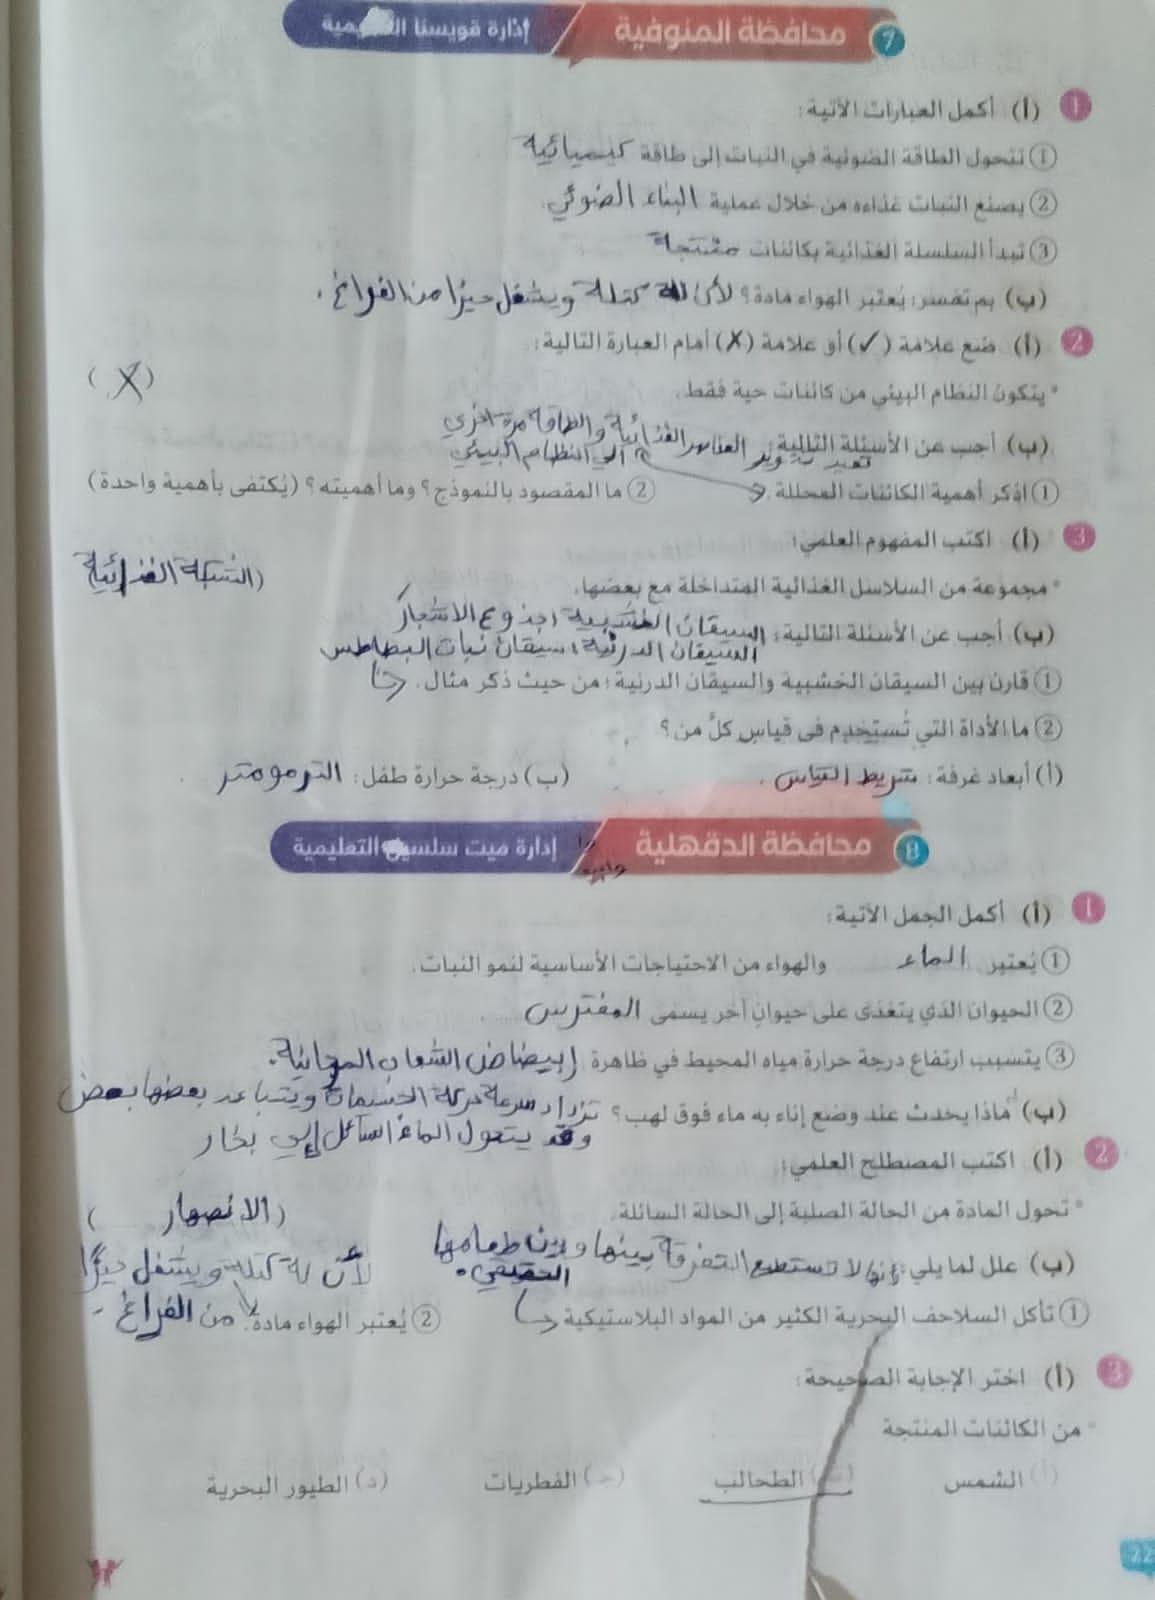 7 محافظة المنوفية إدارة قويسنا
1 (أ) أكمل العبارات الآتية:
① تتحول الطاقة الضوئية في النبات إلى طاقة كيميائية
② يصنع النبات غذاءه من خلال عملية البناء الضوئي.
③ تبدأ السلسلة الغذائية بكائنات منتجة
(ب) بم تفسر: يُعتبر الهواء مادة؟ لأن له كتلة ويشغل حيزا من الفراغ.
2 (أ) ضع علامة (✓) أو علامة (✗) أمام العبارة التالية:
• يتكون النظام البيئي من كائنات حية فقط. (X)
(ب) أجب عن الأسئلة التالية: تعيد تدوير العناصر الغذائية والطاقة مرة اخري
الي النظام البيئي
① اذكر أهمية الكائنات المحللة. ② ما المقصود بالنموذج؟ وما أهميته؟ (يُكتفى بأهمية واحدة)
3 (أ) اكتب المفهوم العلمي:
• مجموعة من السلاسل الغذائية المتداخلة مع بعضها. (الشبكة الغذائية
(ب) أجب عن الأسئلة التالية: السيقان الخشبية: جذوع الاشجار
السيقان الدرنية: سيقان نبات البطاطس
① قارن بين السيقان الخشبية والسيقان الدرنية؛ من حيث ذكر مثال.
② ما الأداة التي تُستخدم في قياس كلٍّ من؟
(أ) أبعاد غرفة: شريط القياس. (ب) درجة حرارة طفل: الترمومتر
8 محافظة الدقهلية إدارة ميت سلسيل التعليمية
1 (أ) أكمل الجمل الآتية:
① يُعتبر الماء والهواء من الاحتياجات الأساسية لنمو النبات.
② الحيوان الذي يتغذى على حيوان آخر يسمى المفترس
③ يتسبب ارتفاع درجة حرارة مياه المحيط في ظاهرة إبيضاض الشعاب المرجانية.
(ب) ماذا يحدث عند وضع إناء به ماء فوق لهب؟ تزداد سرعة حركة الجسيمات ويتباعد بعضها بعض
وقد يتحول الماء السائل إلي بخار
2 (أ) اكتب المصطلح العلمي:
• تحول المادة من الحالة الصلبة إلى الحالة السائلة. (الانصهار)
(ب) علل لما يلي: إنها لا تستطيع التفرقة بينها وبين طعامها الحقيقي. لأن له كتلة ويشغل حيزًا
① تأكل السلاحف البحرية الكثير من المواد البلاستيكية ② يُعتبر الهواء مادة. من الفراغ.
3 (أ) اختر الإجابة الصحيحة:
• من الكائنات المنتجة
(أ) الشمس (ب) الطحالب (جـ) الفطريات (د) الطيور البحرية
22